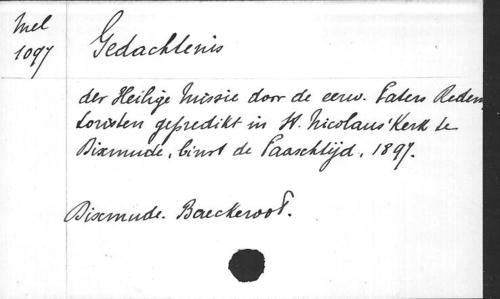 Mel
1097
Gedachtenis
der Heilige Missie door de eerw. Paters Redem
toristen gepredikt in St. Nicolaus' Kerk te
Dixmude, binst de Paaschtijd, 1897.
Dixmude. Baeckeroot.